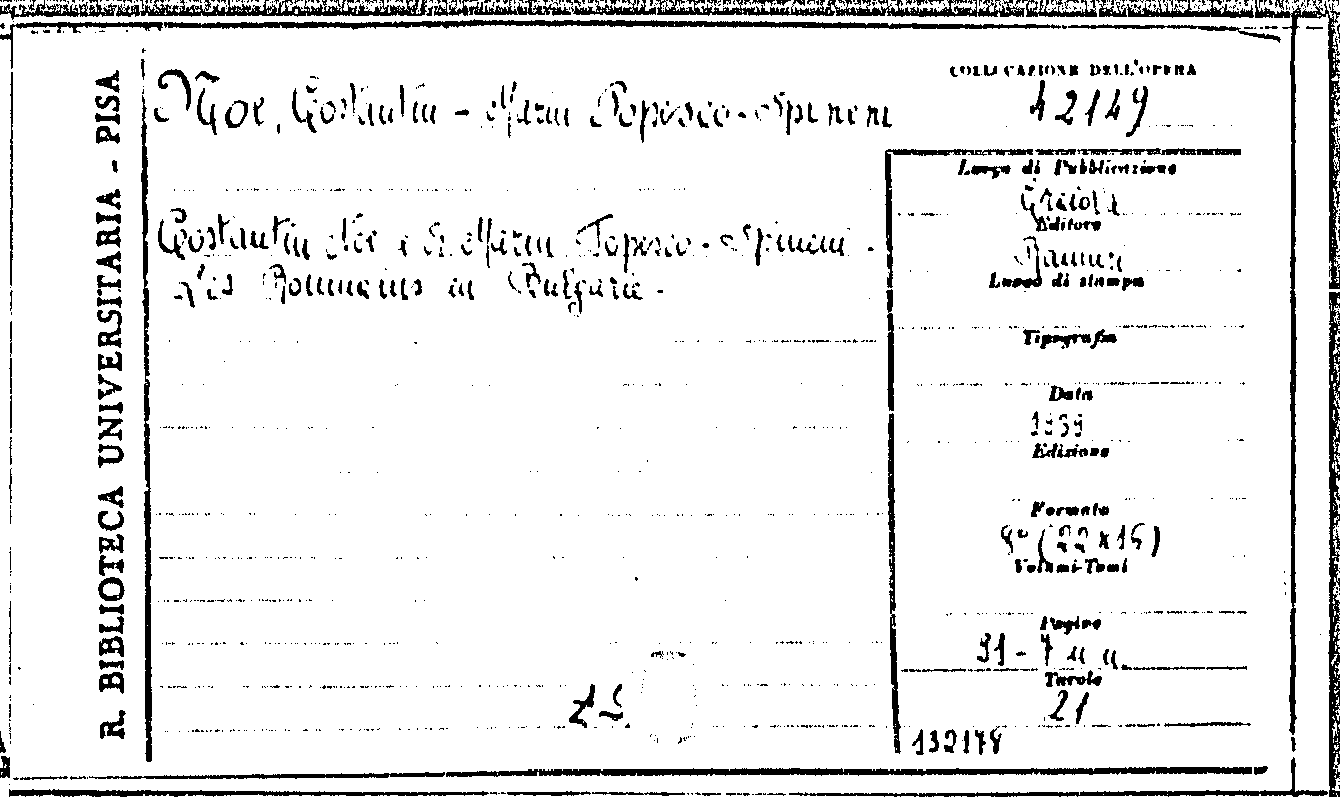 R. BIBLIOTECA UNIVERSITARIA - PISA
Noe, Costantin - Marin Popesco-Spineni
Costantin Noe e Marin Popesco-Spineni.
Les Roumains en Bulgarie.
COLLOCAZIONE DELL'OPERA
42149
Luogo di Pubblicazione
Craiova
Editore
Ramuri
Luogo di stampa
Tipografia
Data
1939
Edizione
Formato
8° (22x15)
Volumi-Tomi
Pagine
91-7 n n.
Tavole
21
132178